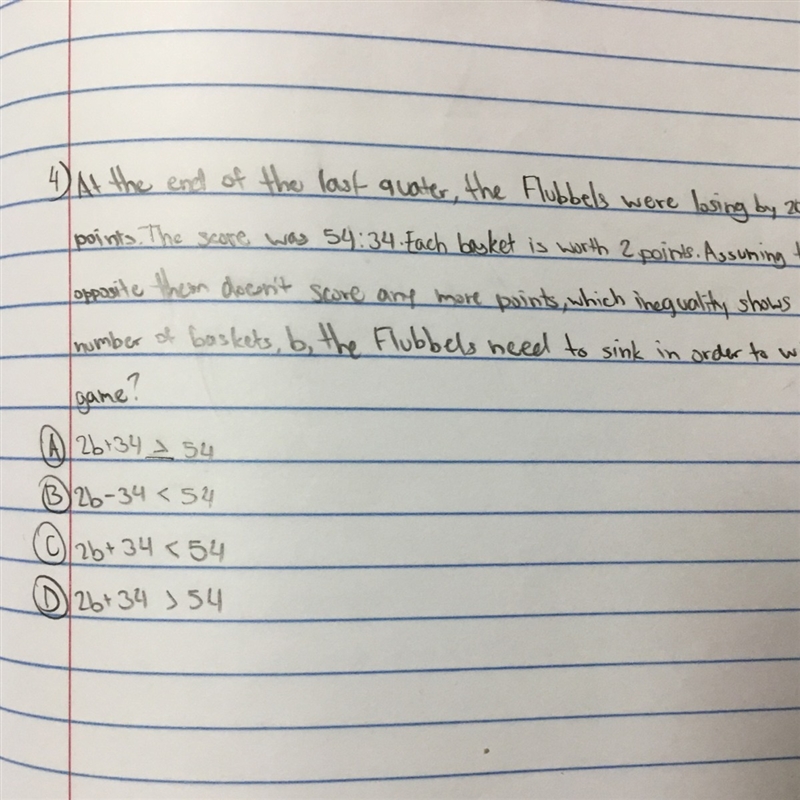 4) At the end of the last quater, the Flubbels were losing by 20
points. The score was 54:34. Each basket is worth 2 points. Assuming
opposite them doesn't score any more points, which inequality shows
number of baskets, b, the Flubbels need to sink in order to wi
game?
A 2b+34 ≥ 54
B 2b-34 < 54
C 2b+34 < 54
D 2b+34 > 54